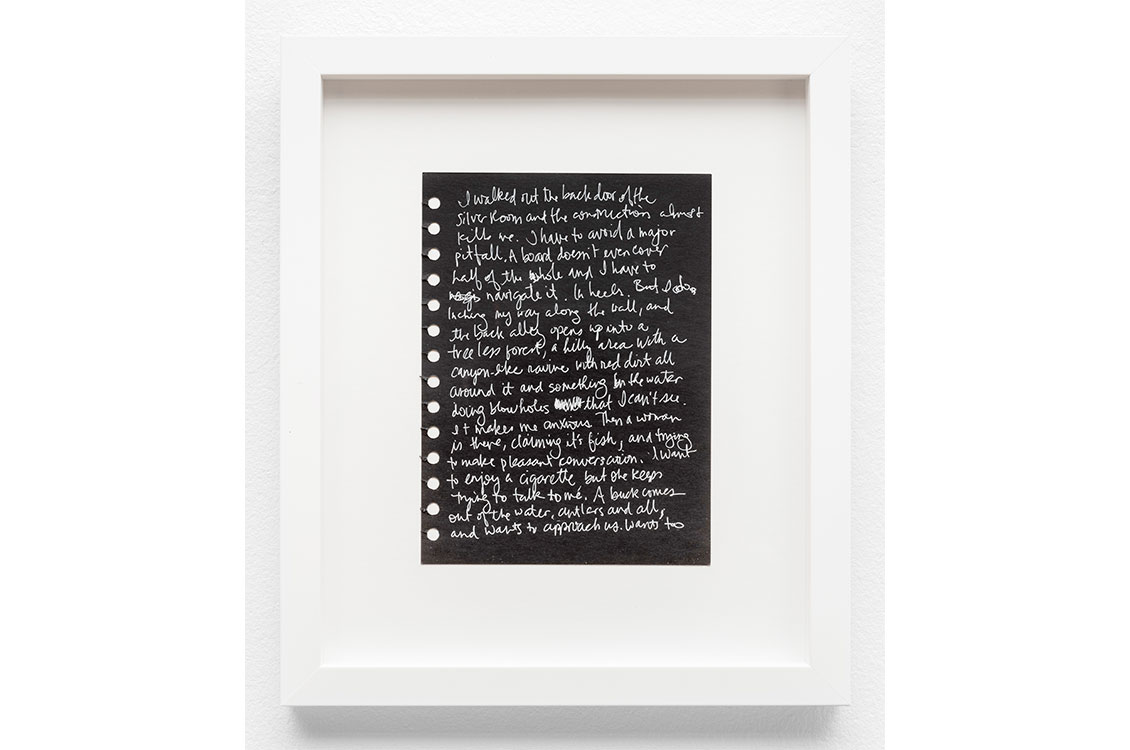 I walked out the back door of the
Silver Room and the construction almost
kills me. I have to avoid a major
pitfall. A board doesn't even cover
half of the whole and I have to
navigate it. In heels. But I do,
Inching my way along the wall, and
the back alley opens up into a
treeless forest, a hilly area with a
canyon-like ravine with red dirt all
around it and something in the water
doing blowholes that I can't see.
It makes me anxious. Then a woman
is there, claiming it's fish, and trying
to make pleasant conversation. I want
to enjoy a cigarette but she keeps
trying to talk to me. A buck comes
out of the water, antlars and all,
and wants to approach us. Wants to